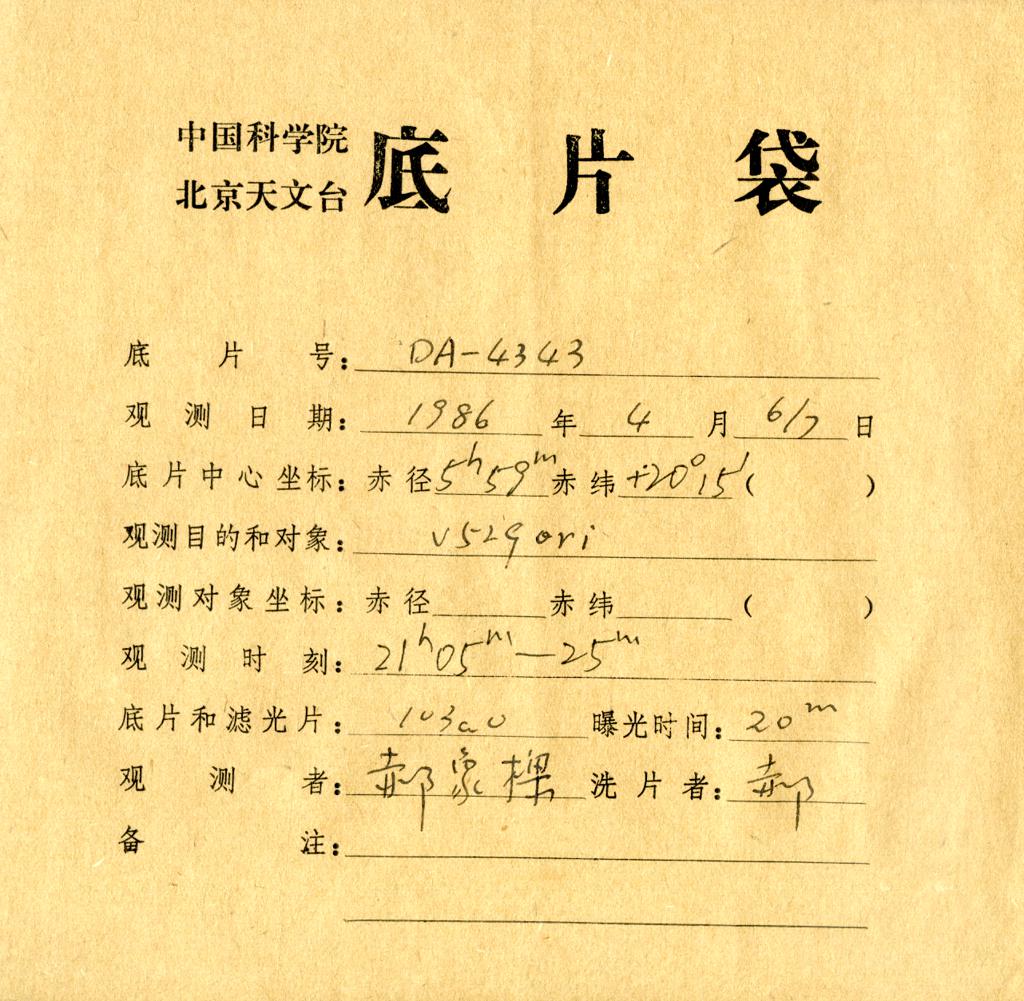 中国科学院
北京天文台 底片袋
底片号：DA-4343
观测日期：1986年4月6/7日
底片中心坐标：赤径5h59m赤纬+20°15′( )
观测目的和对象：v529 ori
观测对象坐标：赤径 赤纬 ( )
观测时刻：21h05m—25m
底片和滤光片：103aO 曝光时间：20m
观测者：郝象樑 洗片者：郝
备注：